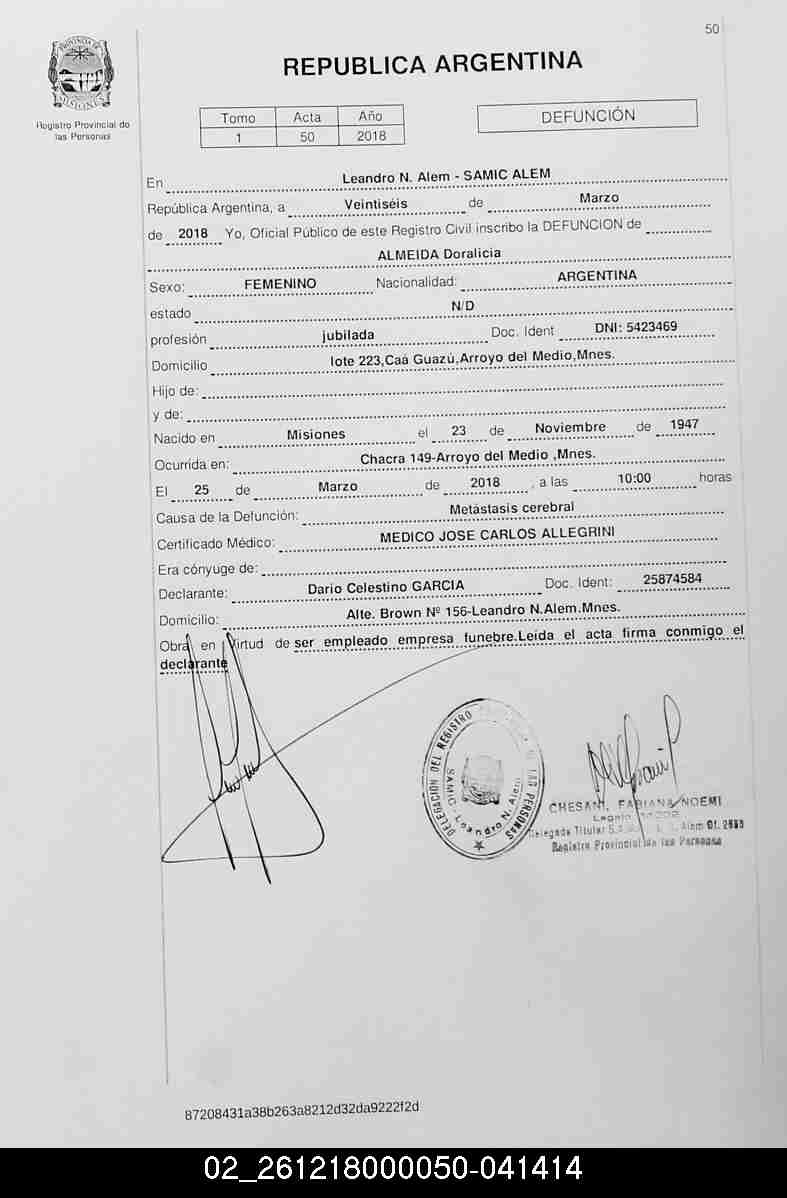 50
PROVINCIA DE
MISIONES
Registro Provincial de
las Personas
REPUBLICA ARGENTINA
Tomo Acta Año
1 50 2018
DEFUNCIÓN
En Leandro N. Alem - SAMIC ALEM
República Argentina, a Veintiséis de Marzo
de 2018 Yo, Oficial Público de este Registro Civil inscribo la DEFUNCION de
ALMEIDA Doralicia
Sexo: FEMENINO Nacionalidad: ARGENTINA
estado N/D
profesión jubilada Doc. Ident DNI: 5423469
Domicilio lote 223,Caá Guazú,Arroyo del Medio,Mnes.
Hijo de:
y de:
Nacido en Misiones el 23 de Noviembre de 1947
Ocurrida en: Chacra 149-Arroyo del Medio ,Mnes.
El 25 de Marzo de 2018 , a las 10:00 horas
Causa de la Defunción: Metástasis cerebral
Certificado Médico: MEDICO JOSE CARLOS ALLEGRINI
Era cónyuge de:
Declarante: Dario Celestino GARCIA Doc. Ident: 25874584
Domicilio: Alte. Brown Nº 156-Leandro N.Alem.Mnes.
Obra en Virtud de ser empleado empresa funebre.Leída el acta firma conmigo el
declarante
DELEGACION DEL REGISTRO DE LAS PERSONAS
SAMIC - Leandro N. Alem
CHESANI, FABIANA NOEMI
Legajo
Delegada Titular Alem Of.
Registro Provincial de las Personas
87208431a38b263a8212d32da9222f2d
02_261218000050-041414